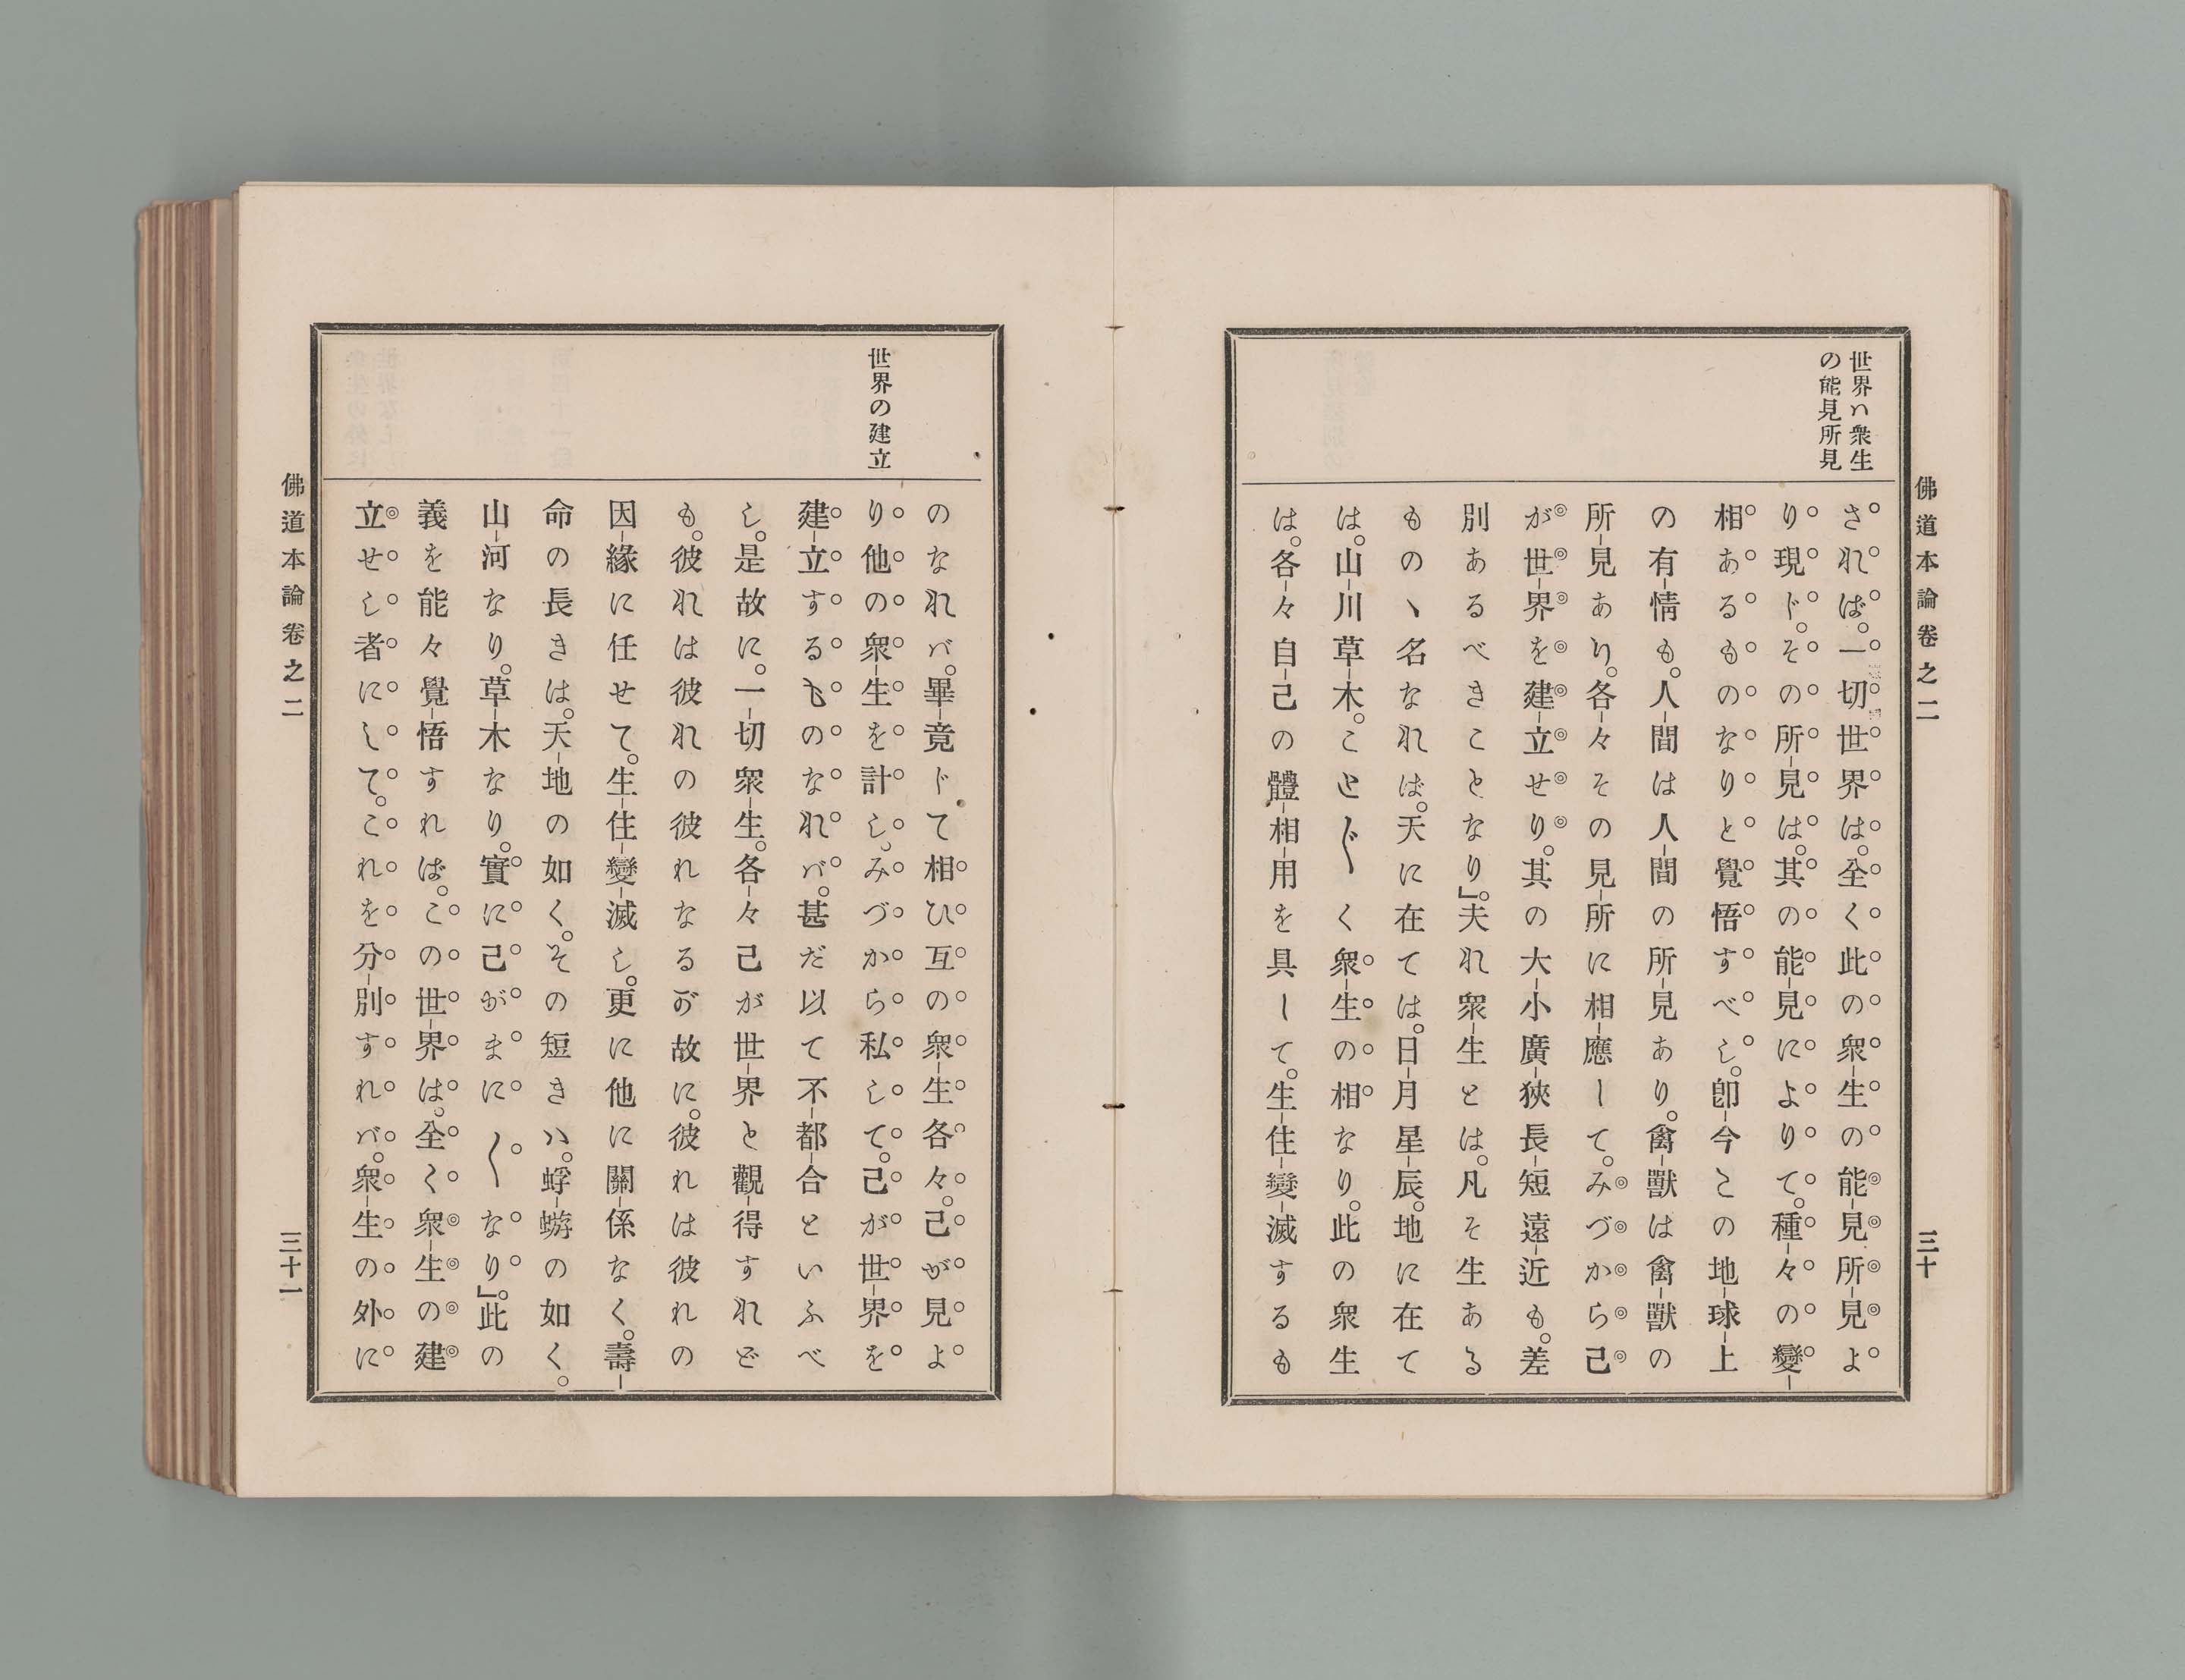 佛道本論卷之二
三十
世界ハ衆生
の能見所見
されば。一切世界は。全く此の衆生の能見所見よ
り現ず。その所見は。其の能見によりて。種々の變
相あるものなりと覺悟すべし。卽今この地球上
の有情も。人間は人間の所見あり。禽獸は禽獸の
所見あり。各々その見所に相應して。みづから己
が世界を建立せり。其の大小廣狹長短遠近も。差
別あるべきことなり』。夫れ衆生とは。凡そ生ある
ものゝ名なれば。天に在ては。日月星辰。地に在て
は。山川草木。こと〴〵く衆生の相なり。此の衆生
は。各々自己の體相用を具して。生住變滅するも
世界の建立
のなれバ。畢竟じて相ひ互の衆生各々。己が見よ
り他の衆生を計し。みづから私して。己が世界を
建立するものなれバ。甚だ以て不都合といふべ
し。是故に。一切衆生。各々己が世界と觀得すれど
も。彼れは彼れの彼れなるが故に。彼れは彼れの
因緣に任せて。生住變滅し。更に他に關係なく。壽
命の長きは。天地の如く。その短きハ。蜉蝣の如く。
山河なり。草木なり。實に己がまに〱なり』。此の
義を能々覺悟すれば。この世界は。全く衆生の建
立せし者にして。これを分別すれバ。衆生の外に
佛道本論卷之二
三十一